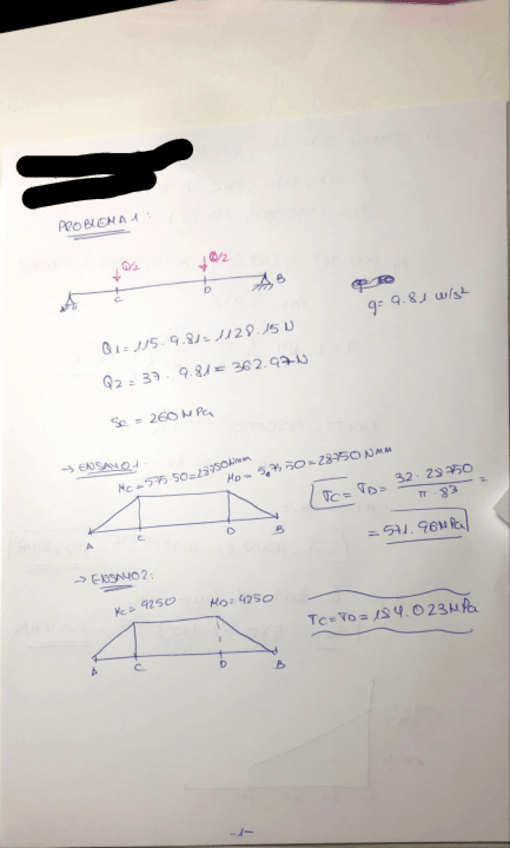 PROBLEMA 1:
Q/2 Q/2
A C D B
g = 9.81 m/s²
Q1 = 115 · 9.81 = 1128.15 N
Q2 = 37 · 9.81 = 362.97 N
Se = 260 MPa
→ ENSAYO 1:
Mc = 575·50 = 28750 Nmm MD = 575·50 = 28750 Nmm
A C D B
σC = σD = 32 · 28750 / π · 8³ =
= 571.96 MPa
→ ENSAYO 2:
Mc = 9250 MD = 9250
A C D B
σC = σD = 184.023 MPa
-1-